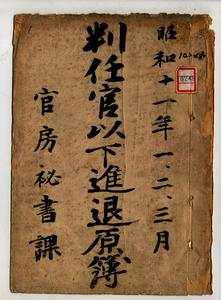 昭和十一年一、二、三月
判任官以下進退原簿
官房秘書課